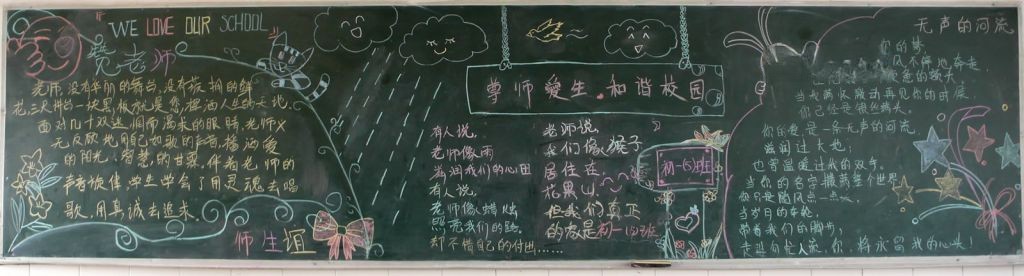 WE LOVE OUR SCHOOL
老师
老师,没有华丽的舞台,没有簇拥的鲜
花,三尺讲台一块黑板就是您挥洒人生的天地,
面对几十双迷惘而渴求的眼睛,老师义
无反顾地用自己如歌的和音,播洒爱
的阳光、智慧的甘霖,伴着老师的
声音旋律,学生学会了用灵魂去唱
歌,用真诚去追求。
师生谊
尊师爱生 和谐校园
有人说,
老师像雨
滋润我们的心田
有人说,
老师像蜡烛
照亮我们的路
却不惜自己的付出……
老师说,
我们像猴子
居住在
花果山
但我们真正
的家是初一(5)班
初一(5)班
无声的河流
你的梦
风不停地奔走
当我两次激动再见你的时候
你已经是银丝满头。
你的爱是一条无声的河流
滋润过大地;
也曾温暖过我的双手。
当你的名字撒满整个世界
你只是随风点一点头,
当岁月的年轮
带着我们的脚步;
你将永留我的心头!